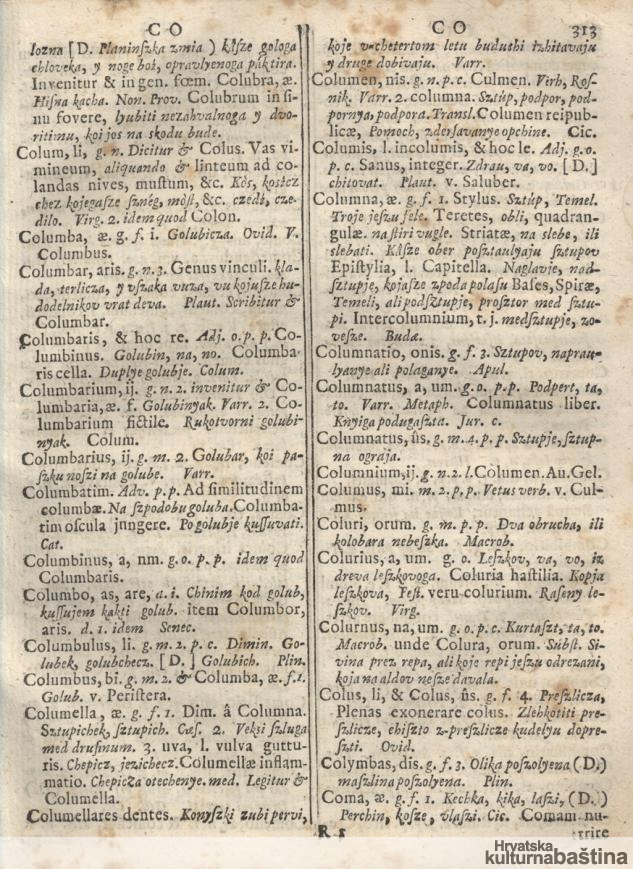 C O
lozna [D. Planinſzka zmia) kâſze gologa
chloveka, y noge boi, opravlyenoga paktira.
Invenitur & in gen. fœm. Colubra, æ.
Hiſna kacha. Non. Prov. Colubrum in ſi
nu fovere, lyubiti nezahvalnoga y dvo-
ritimu, koi jos na skodu bude.
Colum, li, g. n. Dicitur & Colus. Vas vi-
mineum, aliquando & linteum ad co-
landas nives, muſtum, &c. Kòs, koſicz
chez kojegaſze ſznég, mòſt, &c. czedi, cze-
dilo. Virg. 2. idem quod Colon.
Columba, æ. g. f. 1. Golubicza. Ovid. V.
Columbus.
Columbar, aris. g. n. 3. Genus vinculi. kla-
da, terlicza, y vſzaka vuza, vu kojuſze hu-
dodelnikov vrat deva. Plaut. Scribitur &
Columbar.
Columbaris, & hoc re. Adj. o. p. p. Co-
lumbinus. Golubin, na, no. Columba-
ris cella. Duplye golubje. Colum.
Columbarium, ij. g. n. 2. invenitur & Co-
lumbaria, æ. f. Golubinyak. Varr. 2. Co-
lumbarium fictile. Rukotvorni golubi-
nyak. Colum.
Columbarius, ij. g. m. 2. Golubar, koi pa-
ſzku noſzi na golube. Varr.
Columbatim. Adv. p. p. Ad ſimilitudinem
columbæ. Na ſzpodobu goluba. Columba-
tim oſcula jungere. Po golubje kuſſuvati.
Cat.
Columbinus, a, nm. g. o. p. p. idem quod
Columbaris.
Columbo, as, are, a. 1. Chinim kod golub,
kuſſujem kakti golub. item Columbor,
aris. d. 1. idem Senec.
Columbulus, li. g. m. 2. p. c. Dimin. Go-
lubek, golubchecz. [D.] Golubich. Plin.
Columbus, bi. g. m. 2. & Columba, æ. f. 1.
Golub. v. Periſtera.
Columella, æ. g. f. 1. Dim. â Columna.
Sztupichek, ſztupich. Cæſ. 2. Vekſi ſzluga
med druſinum. 3. uva, l. vulva guttu-
ris. Chepicz, jezichecz. Columellæ inflam-
matio. Chepicza otechenye. med. Legitur &
Columella.
Columellares dentes. Konyſzki zubi pervi,
C O 313
koje v-chetertom letu buduchi izhitavaju
y druge dobivaju. Varr.
Columen, nis. g. n. p. c. Culmen. Virh, Roſ-
nik. Varr. 2. columna. Sztúp, podpor, pod-
pornya, podpora. Tranſl. Columen reipub-
licæ, Pomoch, zderſavanye opchine. Cic.
Columis, l. incolumis, & hoc le. Adj. g. o.
p. c. Sanus, integer. Zdrau, va, vo. [D.]
chitovat. Plaut. v. Saluber.
Columna, æ. g. f. 1. Stylus. Sztúp, Temel.
Troje jeszu fele. Teretes, obli, quadran-
gulæ. na ſtiri vugle. Striatæ, na slebe, ili
slebati. Kâſze ober poſztaulyaju ſztupov
Epiſtylia, l. Capitella. Naglavje, nad-
ſztupje, kojaſze zpoda polaſu Baſes, Spiræ,
Temeli, ali podſztupje, proſztor med ſztu-
pi. Intercolumnium, t. j. medſztupje, zo-
veſze. Budæ.
Columnatio, onis. g. f. 3. Sztupov, naprau-
lyanye ali polaganye. Apul.
Columnatus, a, um. g. o. p. p. Podpert, ta,
to. Varr. Metaph. Columnatus liber.
Knyiga podugaſzta. Jur. c.
Columnatus, ûs. g. m. 4. p. p. Sztupje, ſztup-
na ograja.
Columnium, ij. g. n. 2. l. Columen. Au. Gel.
Columus, mi. m. 2. p. p. Vetus verb. v. Cul-
mus.
Coluri, orum. g. m. p. p. Dva obrucha, ili
kolobara nebeſzka. Macrob.
Colurius, a, um. g. o. Leſzkov, va, vo, iz
dreva leſzkovoga. Coluria haſtilia. Kopja
leſzkova, Feſt. veru colurium. Raſeny le-
ſzkov. Virg.
Colurnus, na, um. g. o. p. c. Kurtaſzt, ta, to.
Macrob. unde Colura, orum. Subſt. Si-
vina prez repa, ali koje repi jeszu odrezani,
koja na aldov neſze davala.
Colus, li, & Colus, ûs. g. f. 4. Preſzlicza,
Plenas exonerare colus. Zlehkotiti pre-
ſzlicze, chiſzto z-preſzlicze kudelyu dopre-
ſzti. Ovid.
Colymbas, dis. g. f. 3. Olika poſzolyena (D.)
maſzlina poſzolyena. Plin.
Coma, æ. g. f. 1. Kechka, kika, laſzi, (D.)
Perchin, koſze, vlaſzi. Cic. Comam nu-
R 5 trire
Hrvatska
kulturnabaština